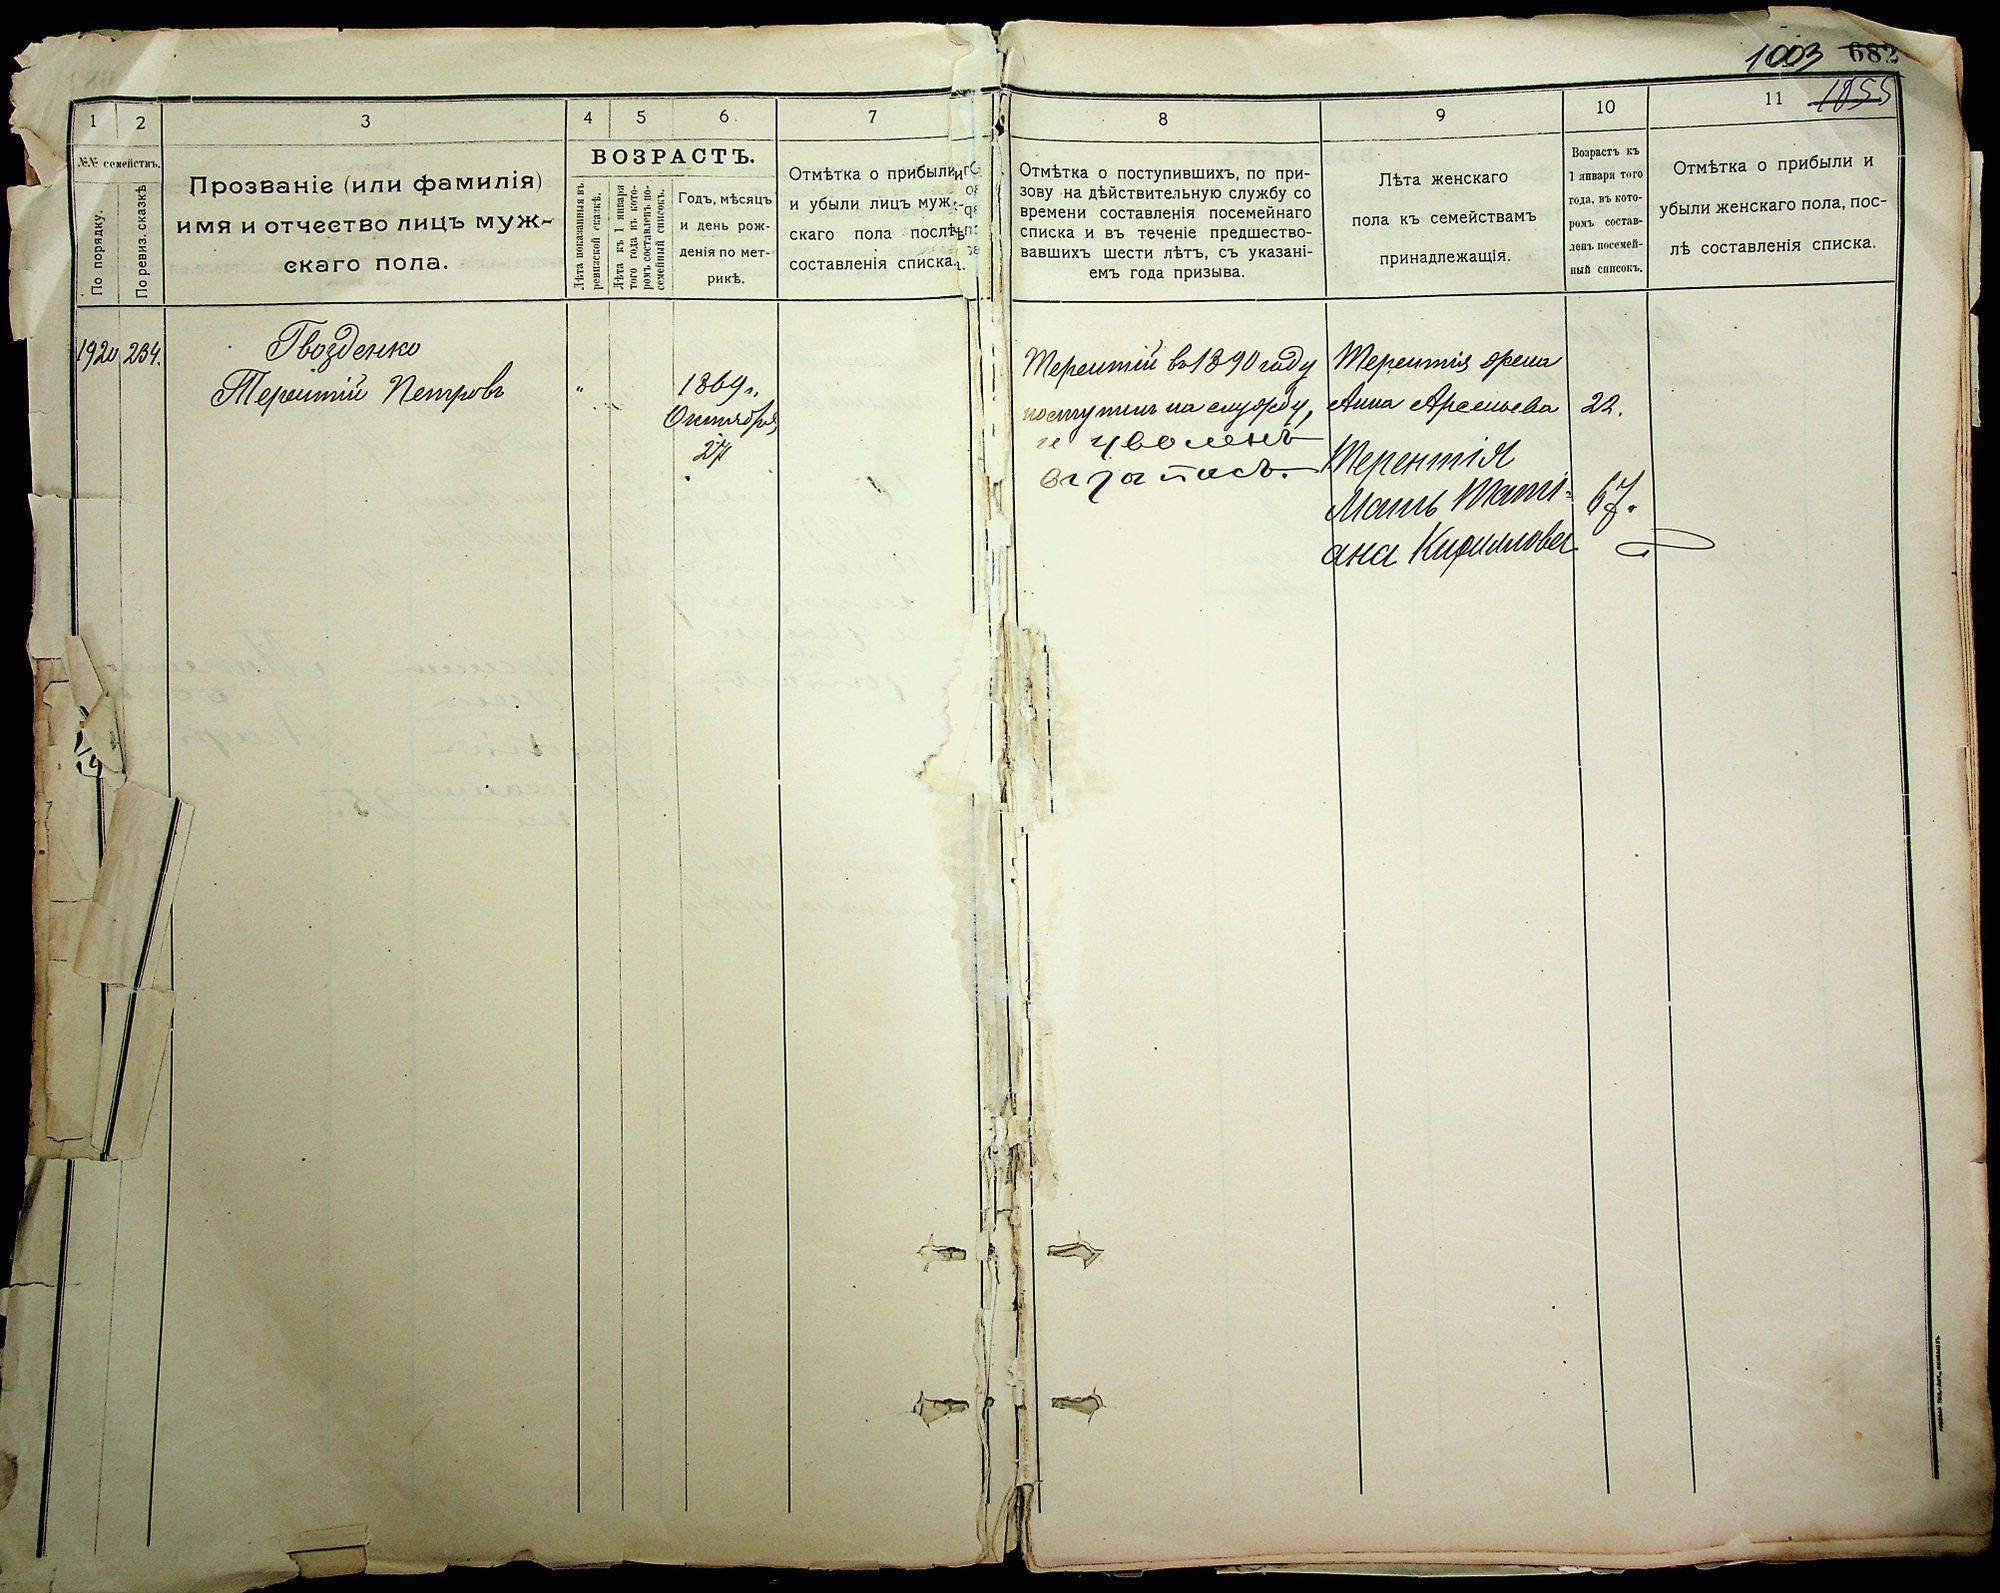 1003 682
1055
1
2
3
4
5
6
7
8
9
10
11
№№ семействъ.
По порядку.
По ревиз. сказкѣ
Прозваніе (или фамилія)
имя и отчество лицъ муж-
скаго пола.
ВОЗРАСТЪ.
Лѣта показанныя въ
ревизской сказкѣ.
Лѣта къ 1 января
того года въ кото-
ромъ составленъ по-
семейный списокъ.
Годъ, мѣсяцъ
и день рож-
денія по мет-
рикѣ.
Отмѣтка о прибыли
и убыли лицъ муж-
скаго пола послѣ
составленія списка.
Отмѣтка о поступившихъ, по при-
зову на дѣйствительную службу со
времени составленія посемейнаго
списка и въ теченіе предшество-
вавшихъ шести лѣтъ, съ указані-
емъ года призыва.
Лѣта женскаго
пола къ семействамъ
принадлежащія.
Возрастъ къ
1 января того
года, въ кото-
ромъ состав-
ленъ посемей-
ный списокъ.
Отмѣтка о прибыли и
убыли женскаго пола, пос-
лѣ составленія списка.
1920 234.
Гвозденко
Терентій Петровъ
"
1869 г.
Октября
27
Терентій въ 1890 году
поступилъ на службу,
и уволенъ
въ запасъ.
Терентія жена
Анна Арсеньева 22.
Терентія
Мать Тати-
ана Кириллова
67.